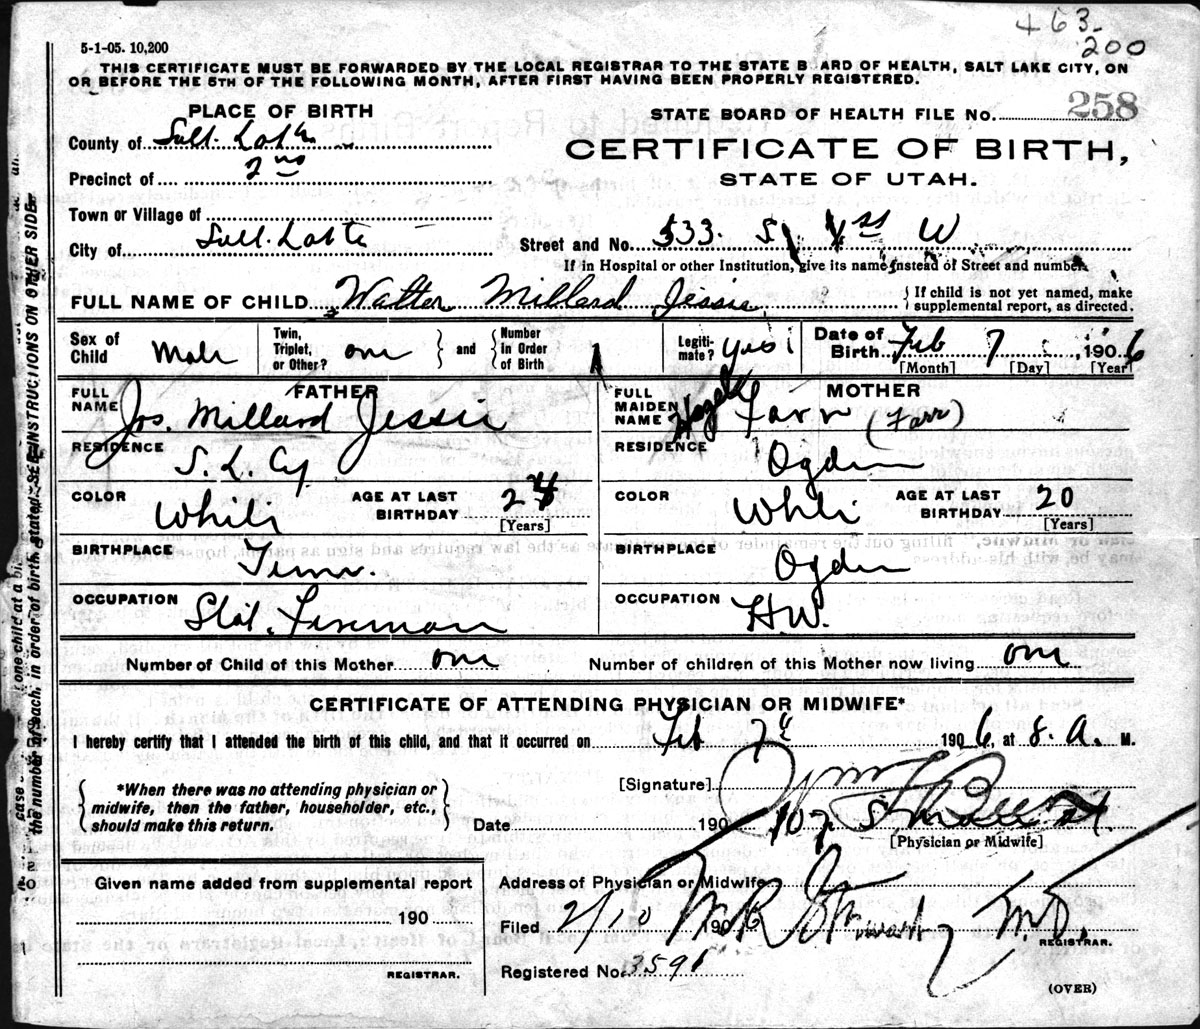 463-
200
5-1-05. 10,200
THIS CERTIFICATE MUST BE FORWARDED BY THE LOCAL REGISTRAR TO THE STATE B ARD OF HEALTH, SALT LAKE CITY, ON
OR BEFORE THE 5TH OF THE FOLLOWING MONTH, AFTER FIRST HAVING BEEN PROPERLY REGISTERED.
PLACE OF BIRTH
County of Salt Lake
Precinct of 2nd
Town or Village of
City of Salt Lake
STATE BOARD OF HEALTH FILE No. 258
CERTIFICATE OF BIRTH,
STATE OF UTAH.
Street and No. 533. S 1st W
If in Hospital or other Institution, give its name instead of Street and number.
FULL NAME OF CHILD Walter Millard Jessie
If child is not yet named, make
supplemental report, as directed.
Sex of Child Male
Twin, Triplet, or Other? one
and
Number in Order of Birth 1
Legiti-mate? yes
Date of Birth Feb 7, 1906
[Month] [Day] [Year]
FATHER
FULL NAME Jos. Millard Jessie
RESIDENCE S. L. Cy.
COLOR White
AGE AT LAST BIRTHDAY 24
[Years]
BIRTHPLACE Tenn.
OCCUPATION Stat. Fireman
MOTHER
FULL MAIDEN NAME Hazel Farr (Farr)
RESIDENCE Ogden
COLOR White
AGE AT LAST BIRTHDAY 20
[Years]
BIRTHPLACE Ogden
OCCUPATION H.W.
Number of Child of this Mother one
Number of children of this Mother now living one
CERTIFICATE OF ATTENDING PHYSICIAN OR MIDWIFE*
I hereby certify that I attended the birth of this child, and that it occurred on Feb 7th 1906, at 8. A. M.
*When there was no attending physician or
midwife, then the father, householder, etc.,
should make this return.
[Signature]
Date 190
[Physician or Midwife]
Given name added from supplemental report
190
REGISTRAR.
Address of Physician or Midwife
Filed 2/10 1906 M.D.
REGISTRAR.
Registered No. 3591
(OVER)
SEE INSTRUCTIONS ON OTHER SIDE.
one child at a
the number of each, in order of birth, stated.